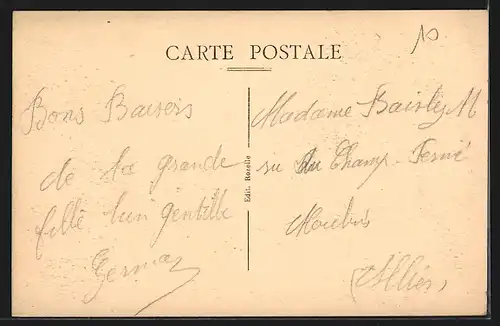 10
CARTE POSTALE
Bons Baisers
de ta grande
fille bien gentille
Germa
Edit. Rozelle
Madame Baisle M
Champ-Fermé
Moulins
(Allier)